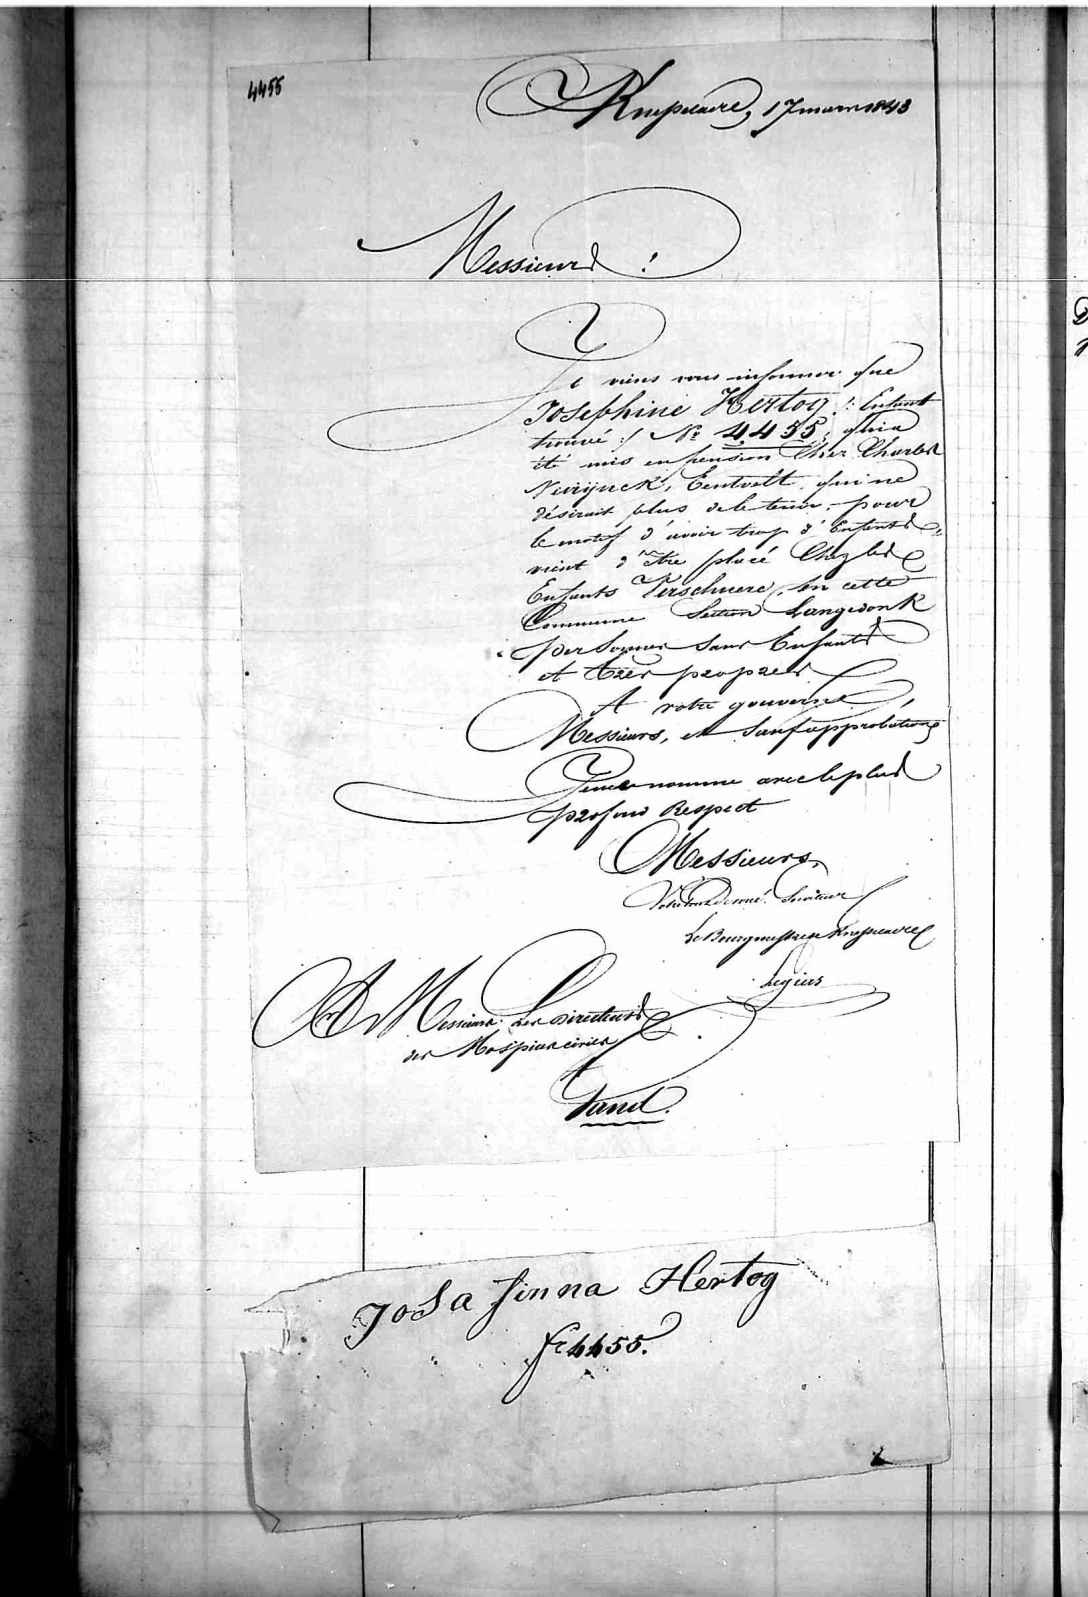 4455
Knesselaere, 17 mars 1843
Messieurs !
Je viens vous informer que
Josephine Hertog /: Enfant
trouvé :/ No 4455, qui a
été mis en pension chez Charles
Neirijnck, Eentvelt, qui ne
désirait plus de le tenir, pour
le motif d'avoir trop d'Enfants,
vient d'être placé Chez les
Enfants Verschuere, en cette
Commune Section Langedonk
personnes sans Enfants
et très propres
A votre gouverne,
Messieurs, et sauf approbation,
Je me nomme avec le plus
profond Respect
Messieurs,
Votre tout Dévoué Serviteur
Le Bourgmestre de Knesselaere
Legiers
A Messieurs Les Directeurs
des Hospices civils
Gand.
JoSa finna Hertog
fc 4455.